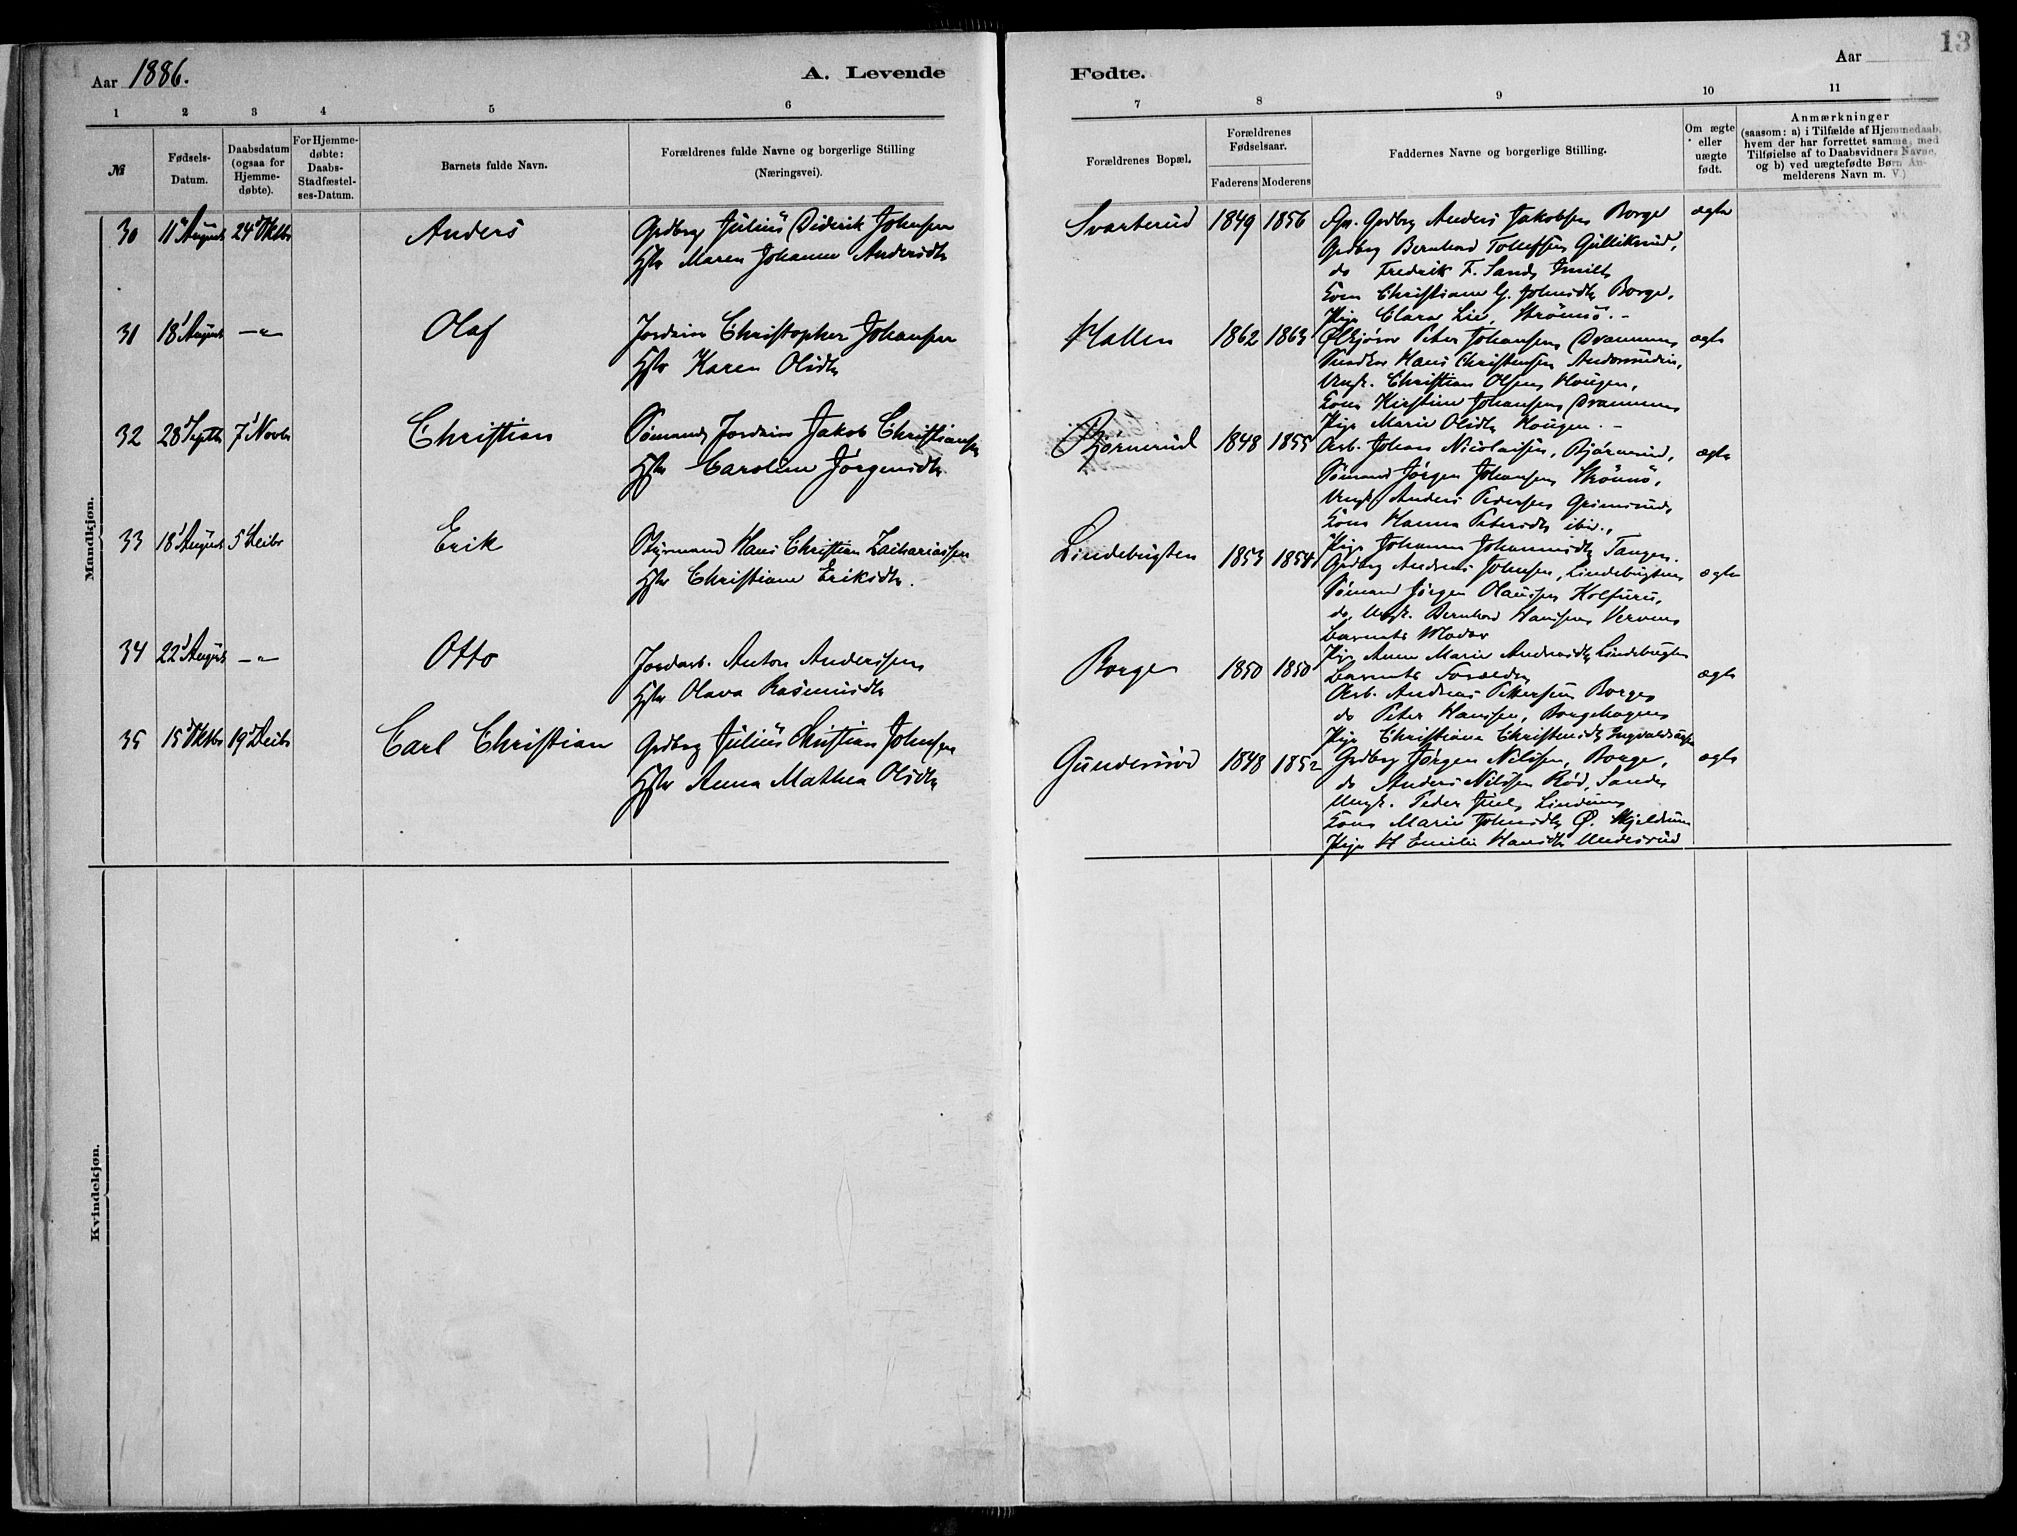 13
Aar 1886.
A. Levende
Fødte.
Aar
1 2 3 4 5 6 7 8 9 10 11
№
Fødsels-
Datum.
Daabsdatum
(ogsaa for
Hjemme-
døbte).
For Hjemme-
døbte:
Daabs-
Stadfæstel-
ses-Datum.
Barnets fulde Navn.
Forældrenes fulde Navne og borgerlige Stilling
(Næringsvei).
Forældrenes Bopæl.
Forældrenes
Fødselsaar.
Faderens Moderens
Faddernes Navne og borgerlige Stilling.
Om ægte
eller
uægte
født.
Anmærkninger
(saasom: a) i Tilfælde af Hjemmedaab,
hvem der har forrettet samme, med
Tilføielse af to Daabsvidners Navne,
og b) ved uægtefødte Børn An-
melderens Navn m. V.)
Mandkjøn.
30 11 August 24 Oktbr Anders
Grdbrg Julius Diderik Johnsen
Hstr Maren Johanne Andersdtr
Svarterud 1849 1856
Grdbrg Anders Jakobsen Borge
Grdbrg Bernhard Tollefsen Gulliksrud,
do Fredrik F. Sand,
Kone Christiane G. Johnsdtr Borge,
Pige Clara Lie, Strömsö.-
ægte
31 18 August -"- Olaf
Christopher Johansen
Hstr Karen Olsdtr
Hallen 1862 1863
Peter Johansen Drammen
Snedker Hans Christensen
Ungk. Christian Olsen Hougen,
Kone Kirstine Johansen Drammen
Pige Marie Olsdtr Hougen.-
ægte
32 28 Septbr 7 Novbr Christian
Sömand Jakob Christiansen
Hstr Caroline Jörgensdtr
Björnerud 1848 1855
Arb. Johan Nicolaisen, Björnerud,
Sömand Jörgen Johansen Strömsö,
Ungk. Anders Pedersen Grimsrud
Kone Hanna Petersdtr ibid.,
Pige Johanne Johannesdtr Tangen.
ægte
33 18 August 5 Decbr Erik
Styrmand Hans Christian Zachariassen
Hstr Christiane Eriksdtr.
Lindebugten 1853 1854
Grdbrg Andreas Johnsen, Lindebugten
Sömand Jörgen Olaussen Holtsuru,
do, Ungk. Bernhard Hanssen Verven
Barnets Moder
Pige Anne Marie Andreasdtr Lindebugten
ægte
34 22 August -"- Otto
Jordarb. Anton Anderssen
Hstr Olava Rasmusdtr
Borge 1850 1850
Barnets Forældre
Arb. Andreas Pettersen Borge
do Peter Hanssen, Borgehagen
Pige Christiane Christensdtr
ægte
35 15 Oktbr 19 Decbr Carl Christian
Grdbrg Julius Christian Johnsen
Hstr Anna Mathea Olsdtr
Gundersrød 1848 1852
Grdbrg Jörgen Nilssen, Borge,
do Anders Nilssen Rød, Sande
Ungk. Peder Juel Lindum
Kone Marie Johnsdtr Ø. Skjeldrum
Pige H Emilie Hansdtr Undesrud
ægte
Kvindekjøn.